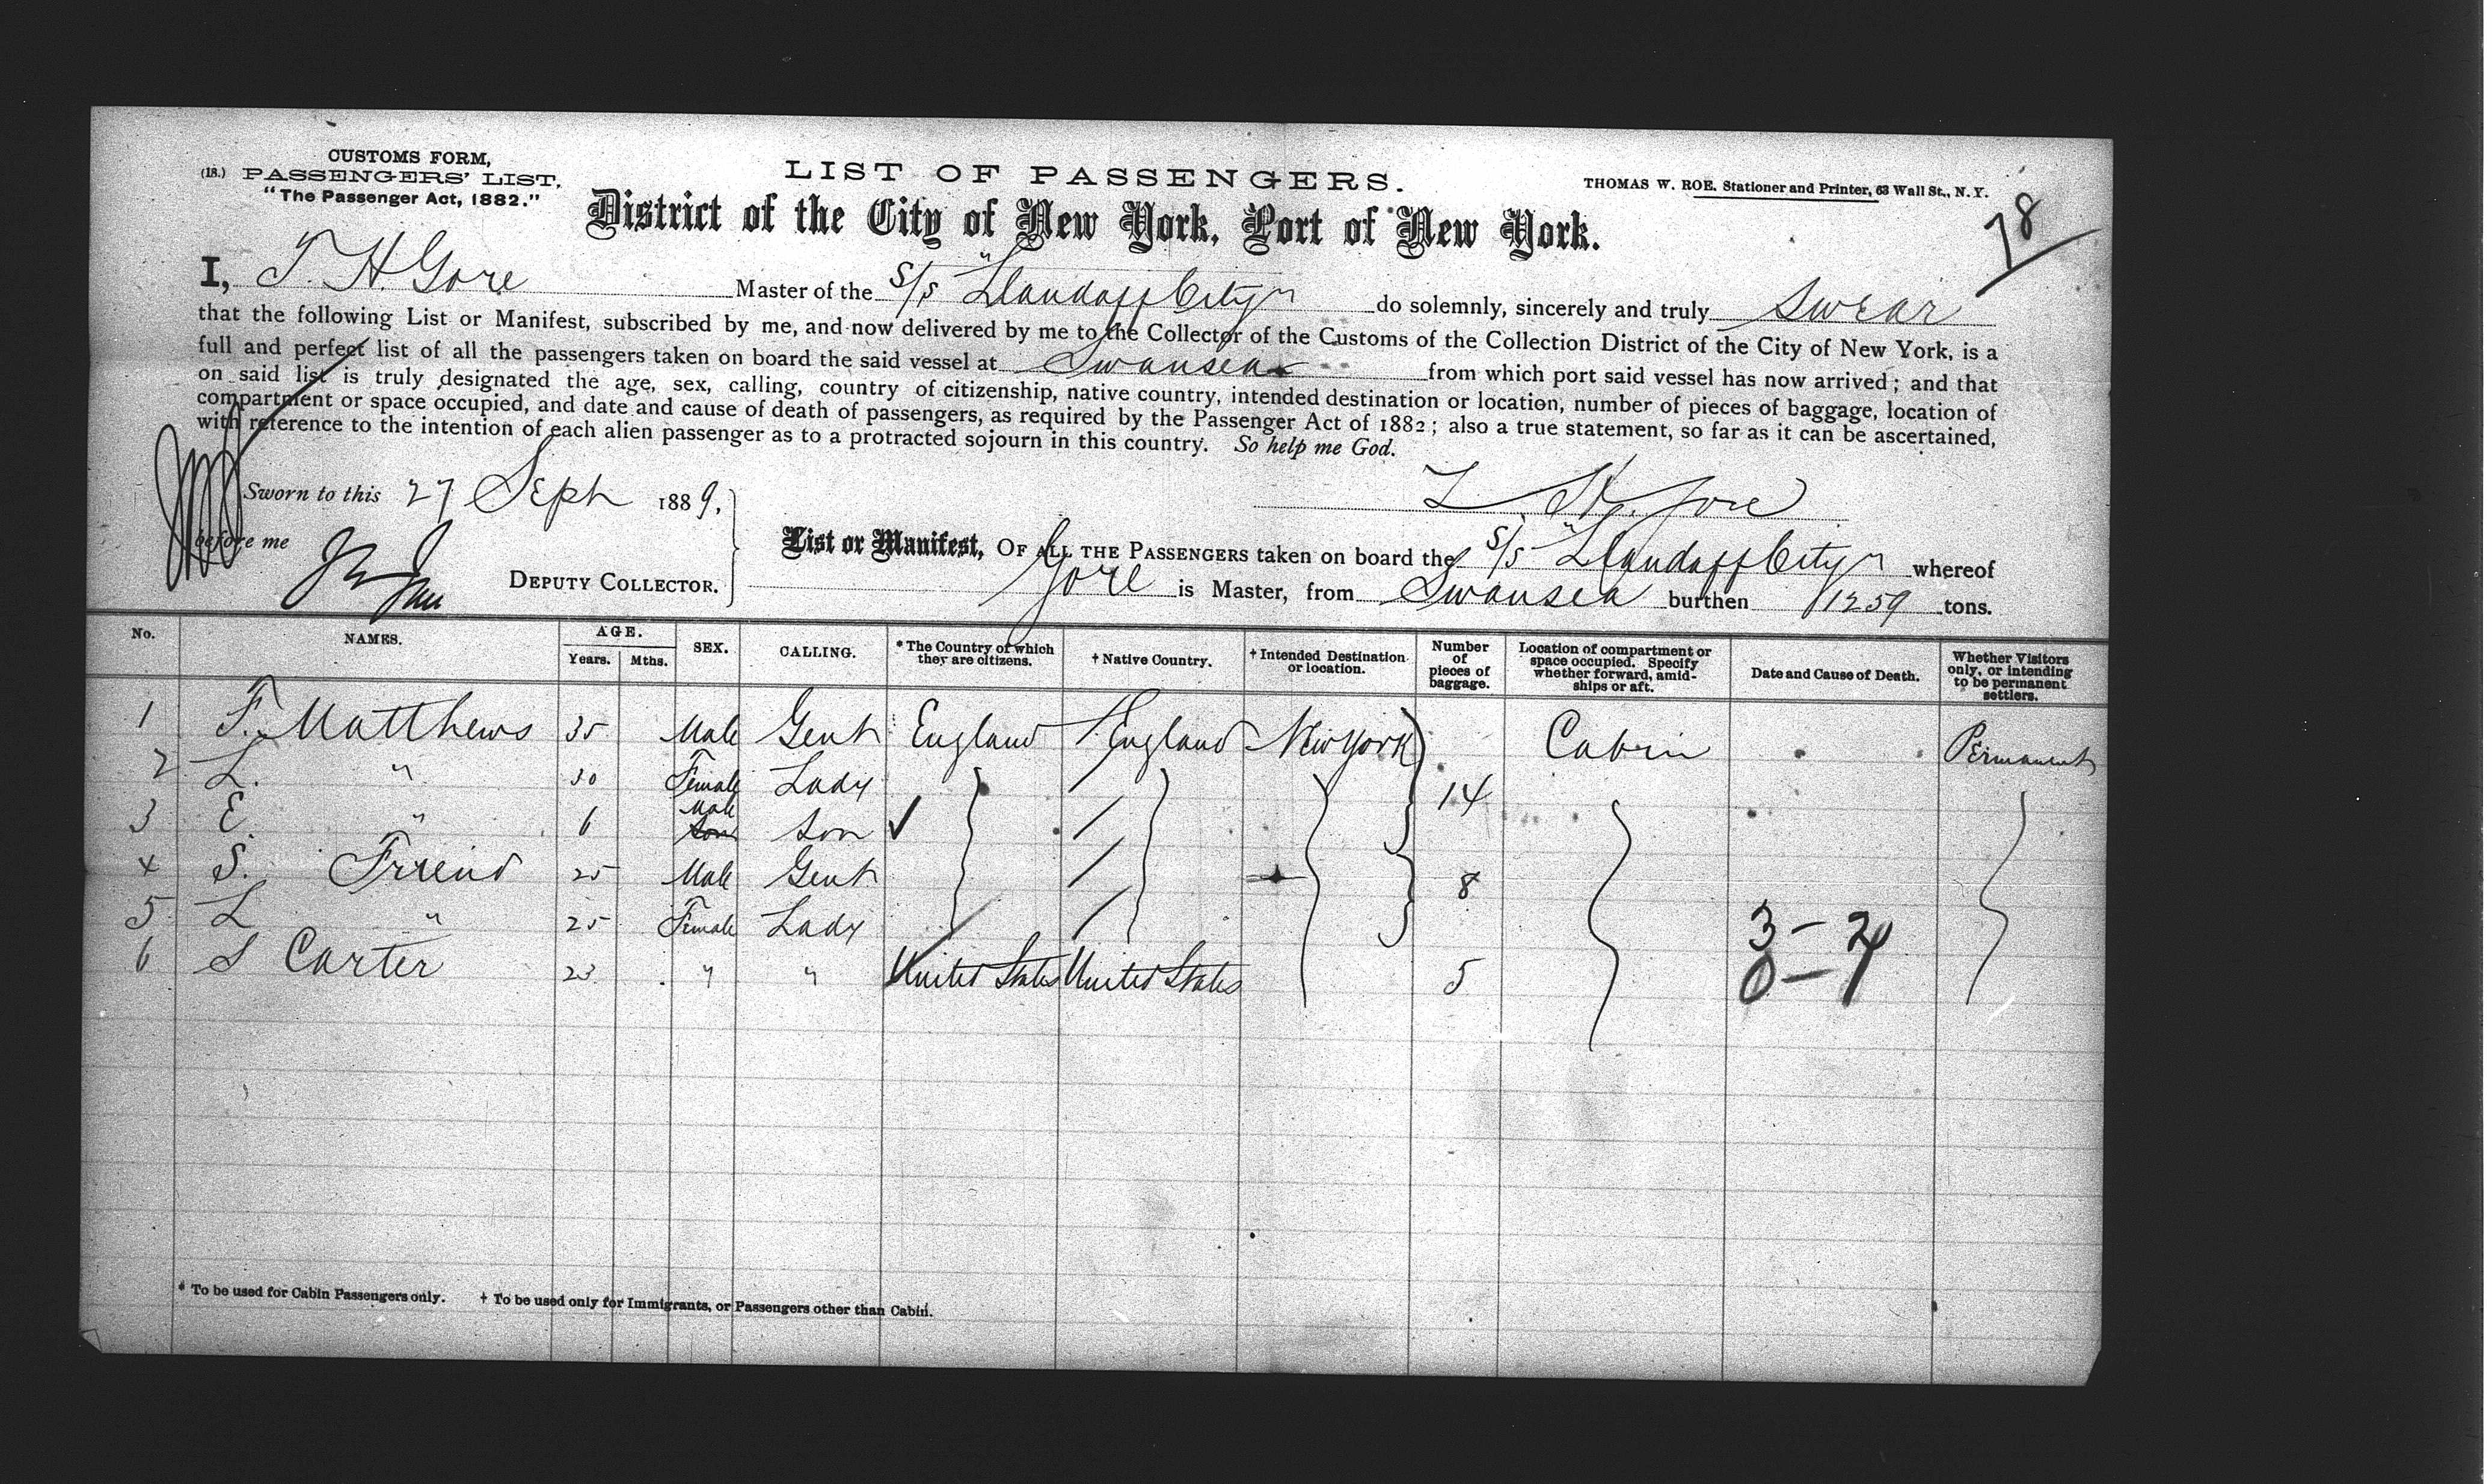 CUSTOMS FORM,
(18.) PASSENGERS' LIST,
"The Passenger Act, 1882."
LIST OF PASSENGERS.
THOMAS W. ROE. Stationer and Printer, 63 Wall St., N.Y.
District of the City of New York, Port of New York.
78
I, T. H. Gore Master of the S/S "Llandaff City" do solemnly, sincerely and truly Swear
that the following List or Manifest, subscribed by me, and now delivered by me to the Collector of the Customs of the Collection District of the City of New York, is a
full and perfect list of all the passengers taken on board the said vessel at Swansea from which port said vessel has now arrived; and that
on said list is truly designated the age, sex, calling, country of citizenship, native country, intended destination or location, number of pieces of baggage, location of
compartment or space occupied, and date and cause of death of passengers, as required by the Passenger Act of 1882; also a true statement, so far as it can be ascertained,
with reference to the intention of each alien passenger as to a protracted sojourn in this country. So help me God.
Sworn to this 27 Sept 1889,
T. H. Gore
before me
DEPUTY COLLECTOR.
List or Manifest, OF ALL THE PASSENGERS taken on board the S/S "Llandaff City" whereof
Gore is Master, from Swansea burthen 1259 tons.
No. NAMES. AGE. Years. Mths. SEX. CALLING. *The Country of which they are citizens. †Native Country. †Intended Destination or location. Number of pieces of baggage. Location of compartment or space occupied. Specify whether forward, amidships or aft. Date and Cause of Death. Whether Visitors only, or intending to be permanent settlers.
1 F. Matthews 35 Male Gent England England New York Cabin Permanent
2 L. " 30 Female Lady 14
3 E. " 6 Male Son Son
4 S. Friend 25 Male Gent 8
5 L " 25 Female Lady 3 –
6 S Carter 23 " " United States United States 5 0 –
* To be used for Cabin Passengers only. † To be used only for Immigrants, or Passengers other than Cabin.